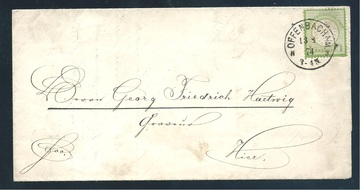 OFFENBACH A/M
Herrn Georg Friedrich Hartwig
Graveur
Hier.